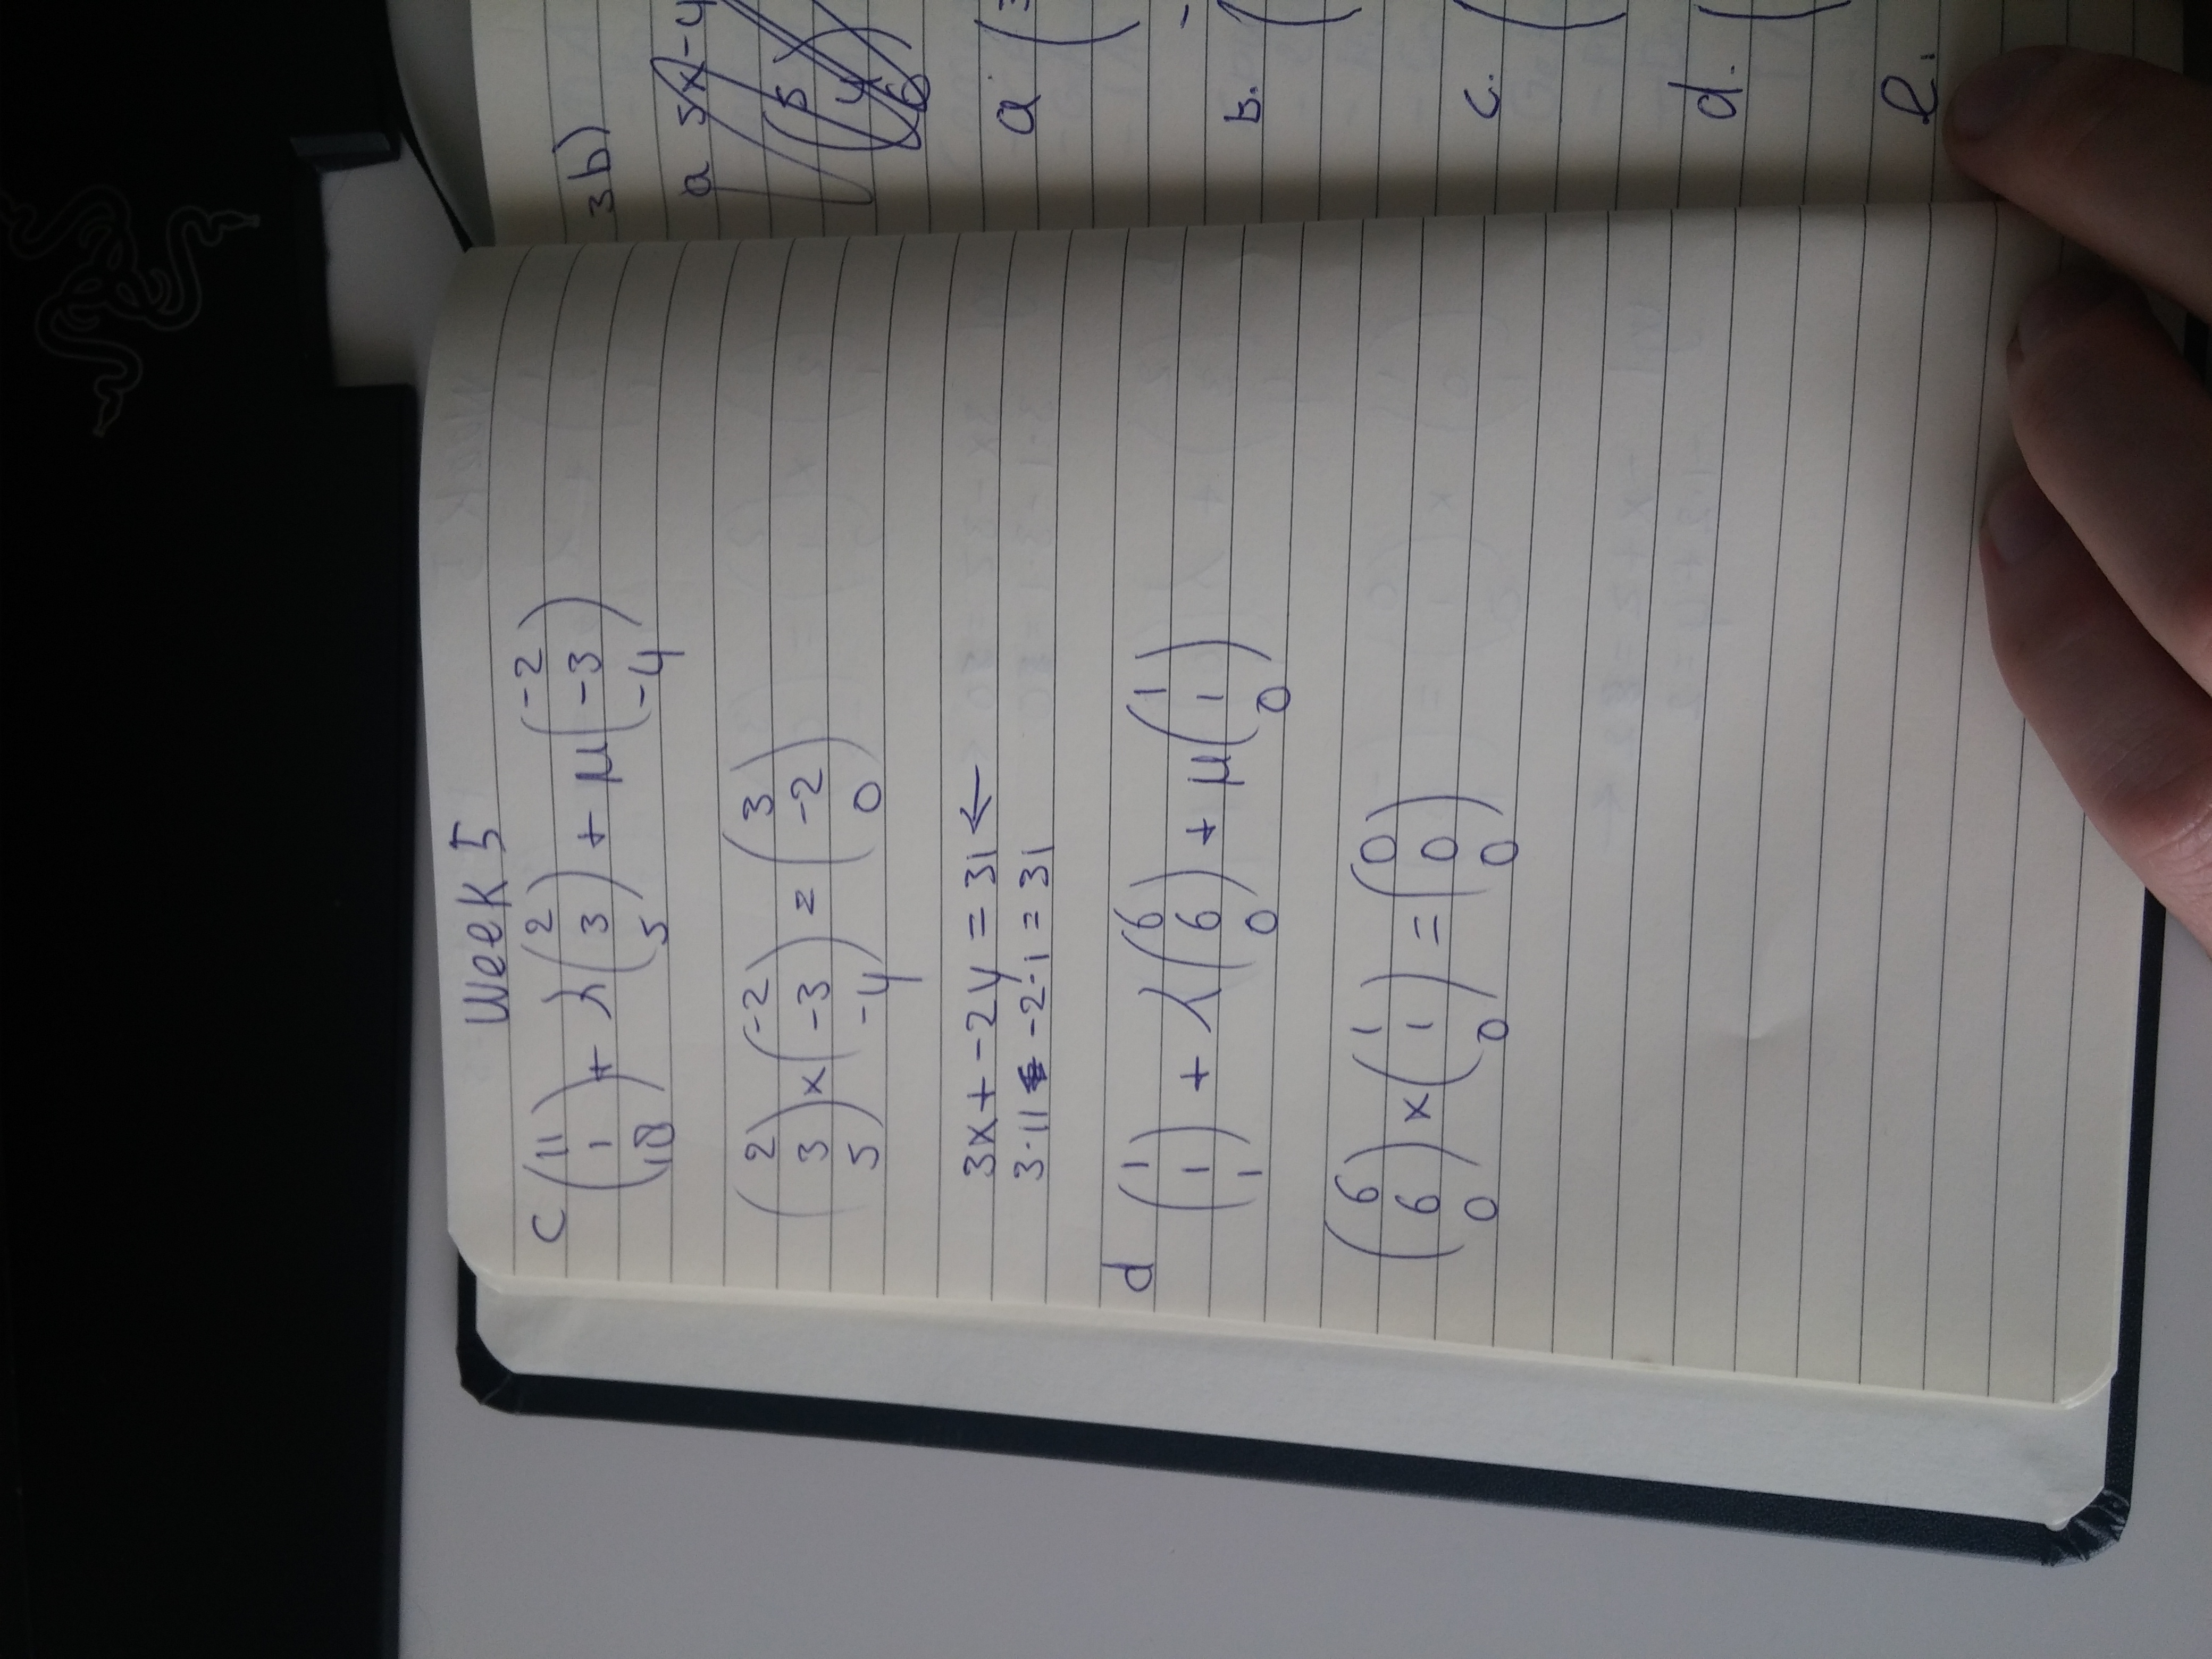 Week 5
c (11 1 18) + λ (2 3 5) + μ (-2 -3 -4)
(2 3 5) x (-2 -3 -4) = (3 -2 0)
3x + -2y = 31 ←
3·11 -2·1 = 31
d (1 1 1) + λ (6 6 0) + μ (1 1 0)
(6 6 0) x (1 1 0) = (0 0 0)
3b)
a 5x-4
(5 4 6)
a (3
b. (
c. (
d. (
e.